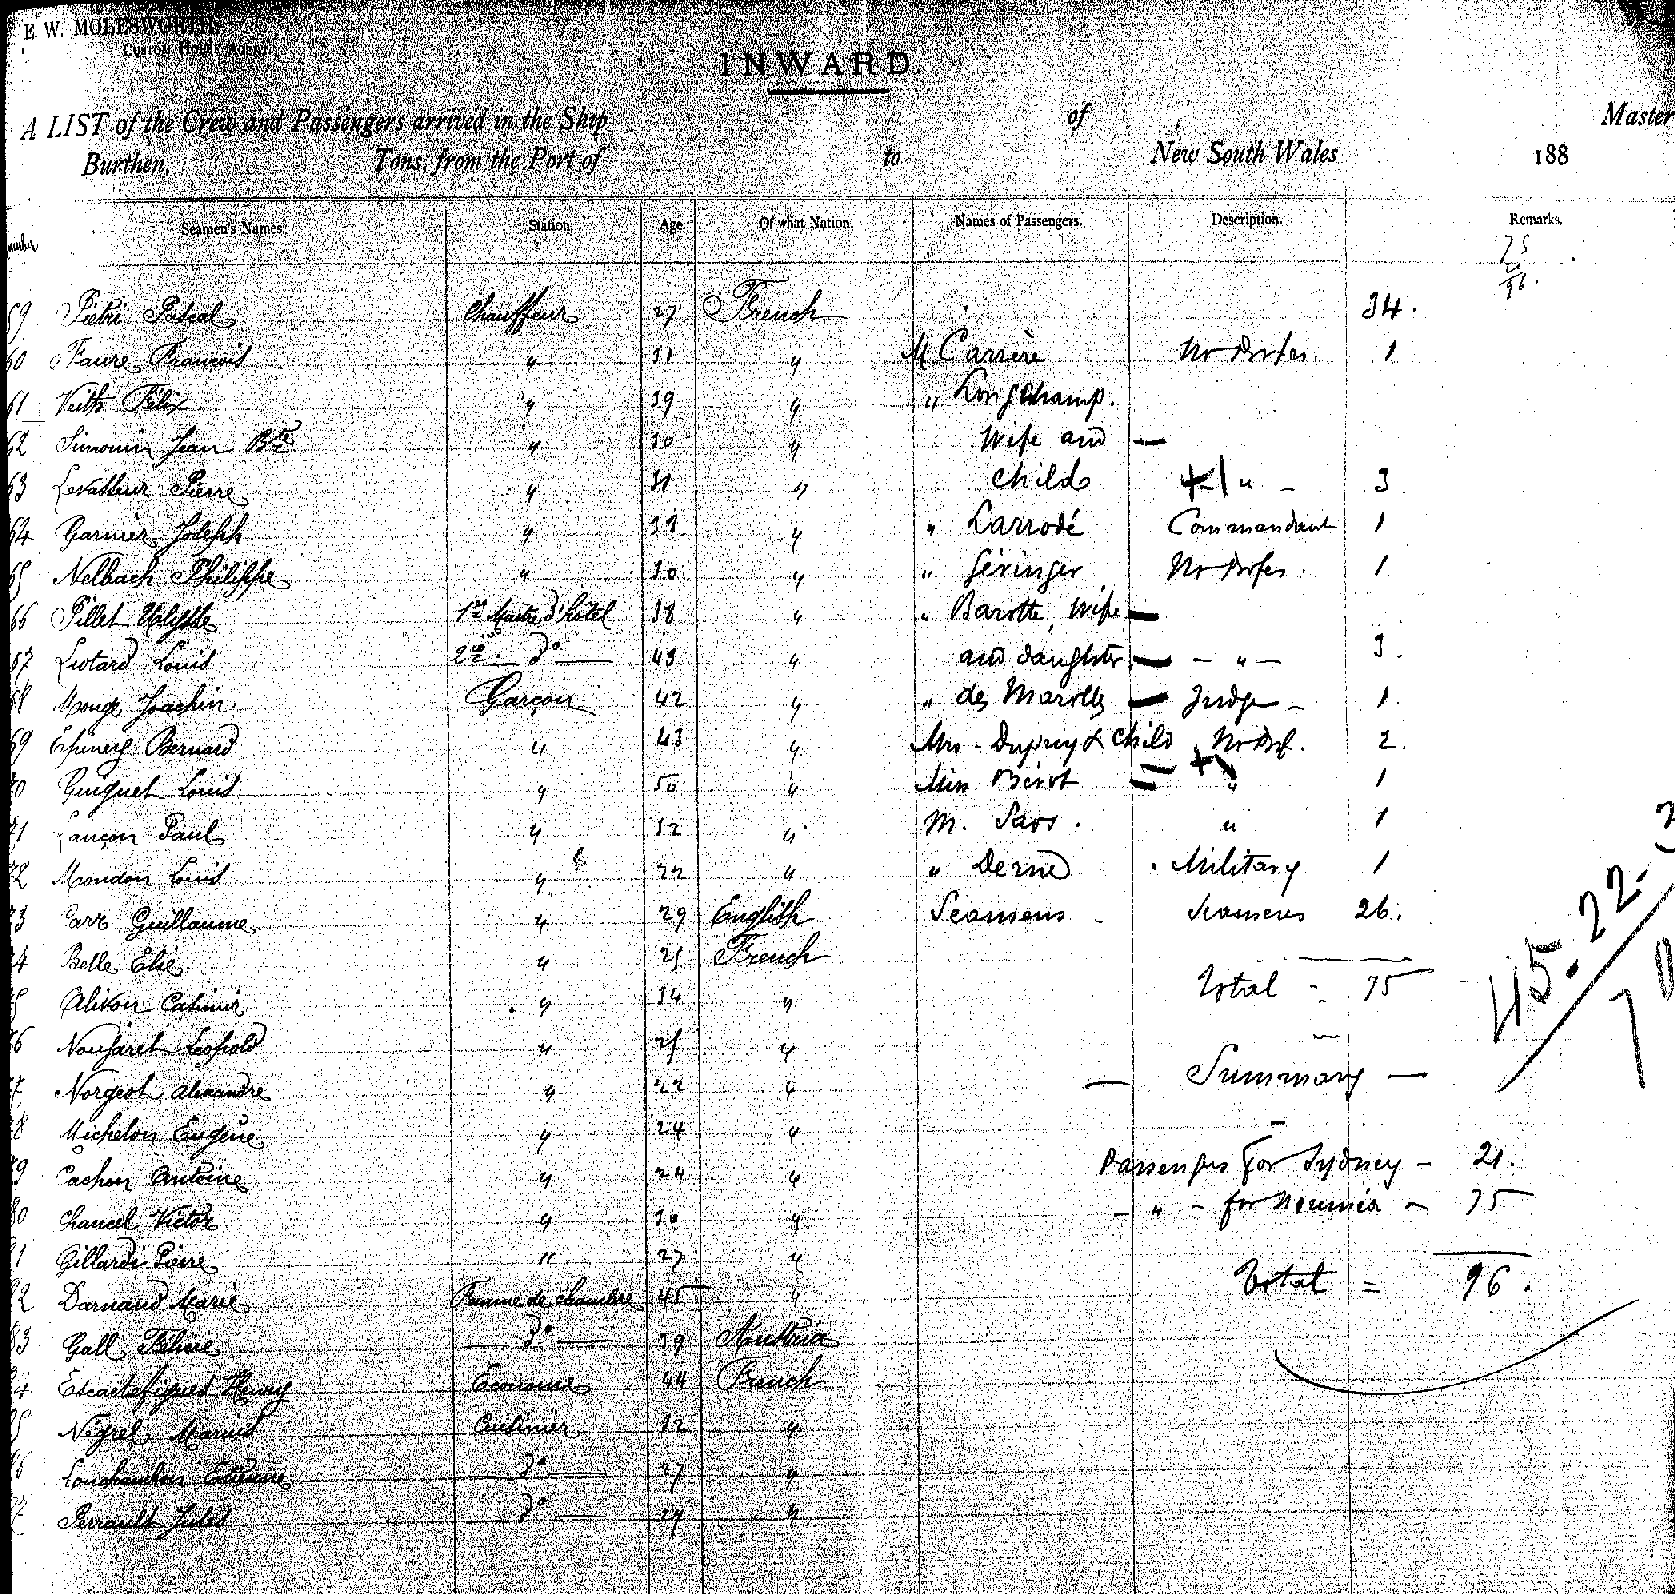 E W. MOLESWORTH
Custom House Agent
INWARD.
A LIST of the Crew and Passengers arrived in the Ship of Master
Burthen, Tons, from the Port of to New South Wales 188
Seamen's Names Station Age Of what Nation. Names of Passengers. Description. Remarks.
75
96.
59 Pietri Pascal Chauffeur 27 French 34.
60 Faure Francois " 31 " M Carrère No Profes. 1
61 Veith Félix " 39 " " Longchamp.
62 Simonin Jean Bte " 30 " Wife and —
63 Levasseur Pierre " 31 " Child " - 3
64 Garnier Joseph " 33 " " Larrodé Commandant 1
65 Nelbach Philippe " 30 " " Géringer No Profes. 1
66 Pillet Ulysse 1er Maitre d'hôtel 38 " " Barotte, Wife —
67 Liotard Louis 2me do 43 " and daughter — - " - 3.
68 Monge Joachim Garçon 42 " " des Marolles — Judge - 1.
69 Bernard " 43 " Mrs - Dupuy & Child No Prof. 2.
70 Guiguet Louis " 50 " Miss Bérot — " 1
71 Lançon Paul " 32 " M. Saos. " 1
72 Mondon Louis " 22 " " Derne . Military 1
73 Carr Guillaume " 29 English Seamens Seamens 26.
74 Belle Elie " 25 French
Total - 75
75 Alivon Casimir " 34 "
45. 22.
76 Léopold " 25 "
77 Norgeot Alexandre " 22 " — Summary —
78 Michelon Eugène " 24 "
79 Cachon Antoine " 24 " Passengers for Sydney - 21.
80 Chancel Victor " 30 " - " - for Noumea - 75
81 Gillardi Pierre " 27 "
82 Darnaud Marie Femme de chambre 45 " Total = 96.
83 Gall do 39 Austria
84 Escartefigues Henry Econome 44 French
85 Négrel Marius Cuisinier 32 "
86 Etienne do 27 "
87 Perrault Jules do "